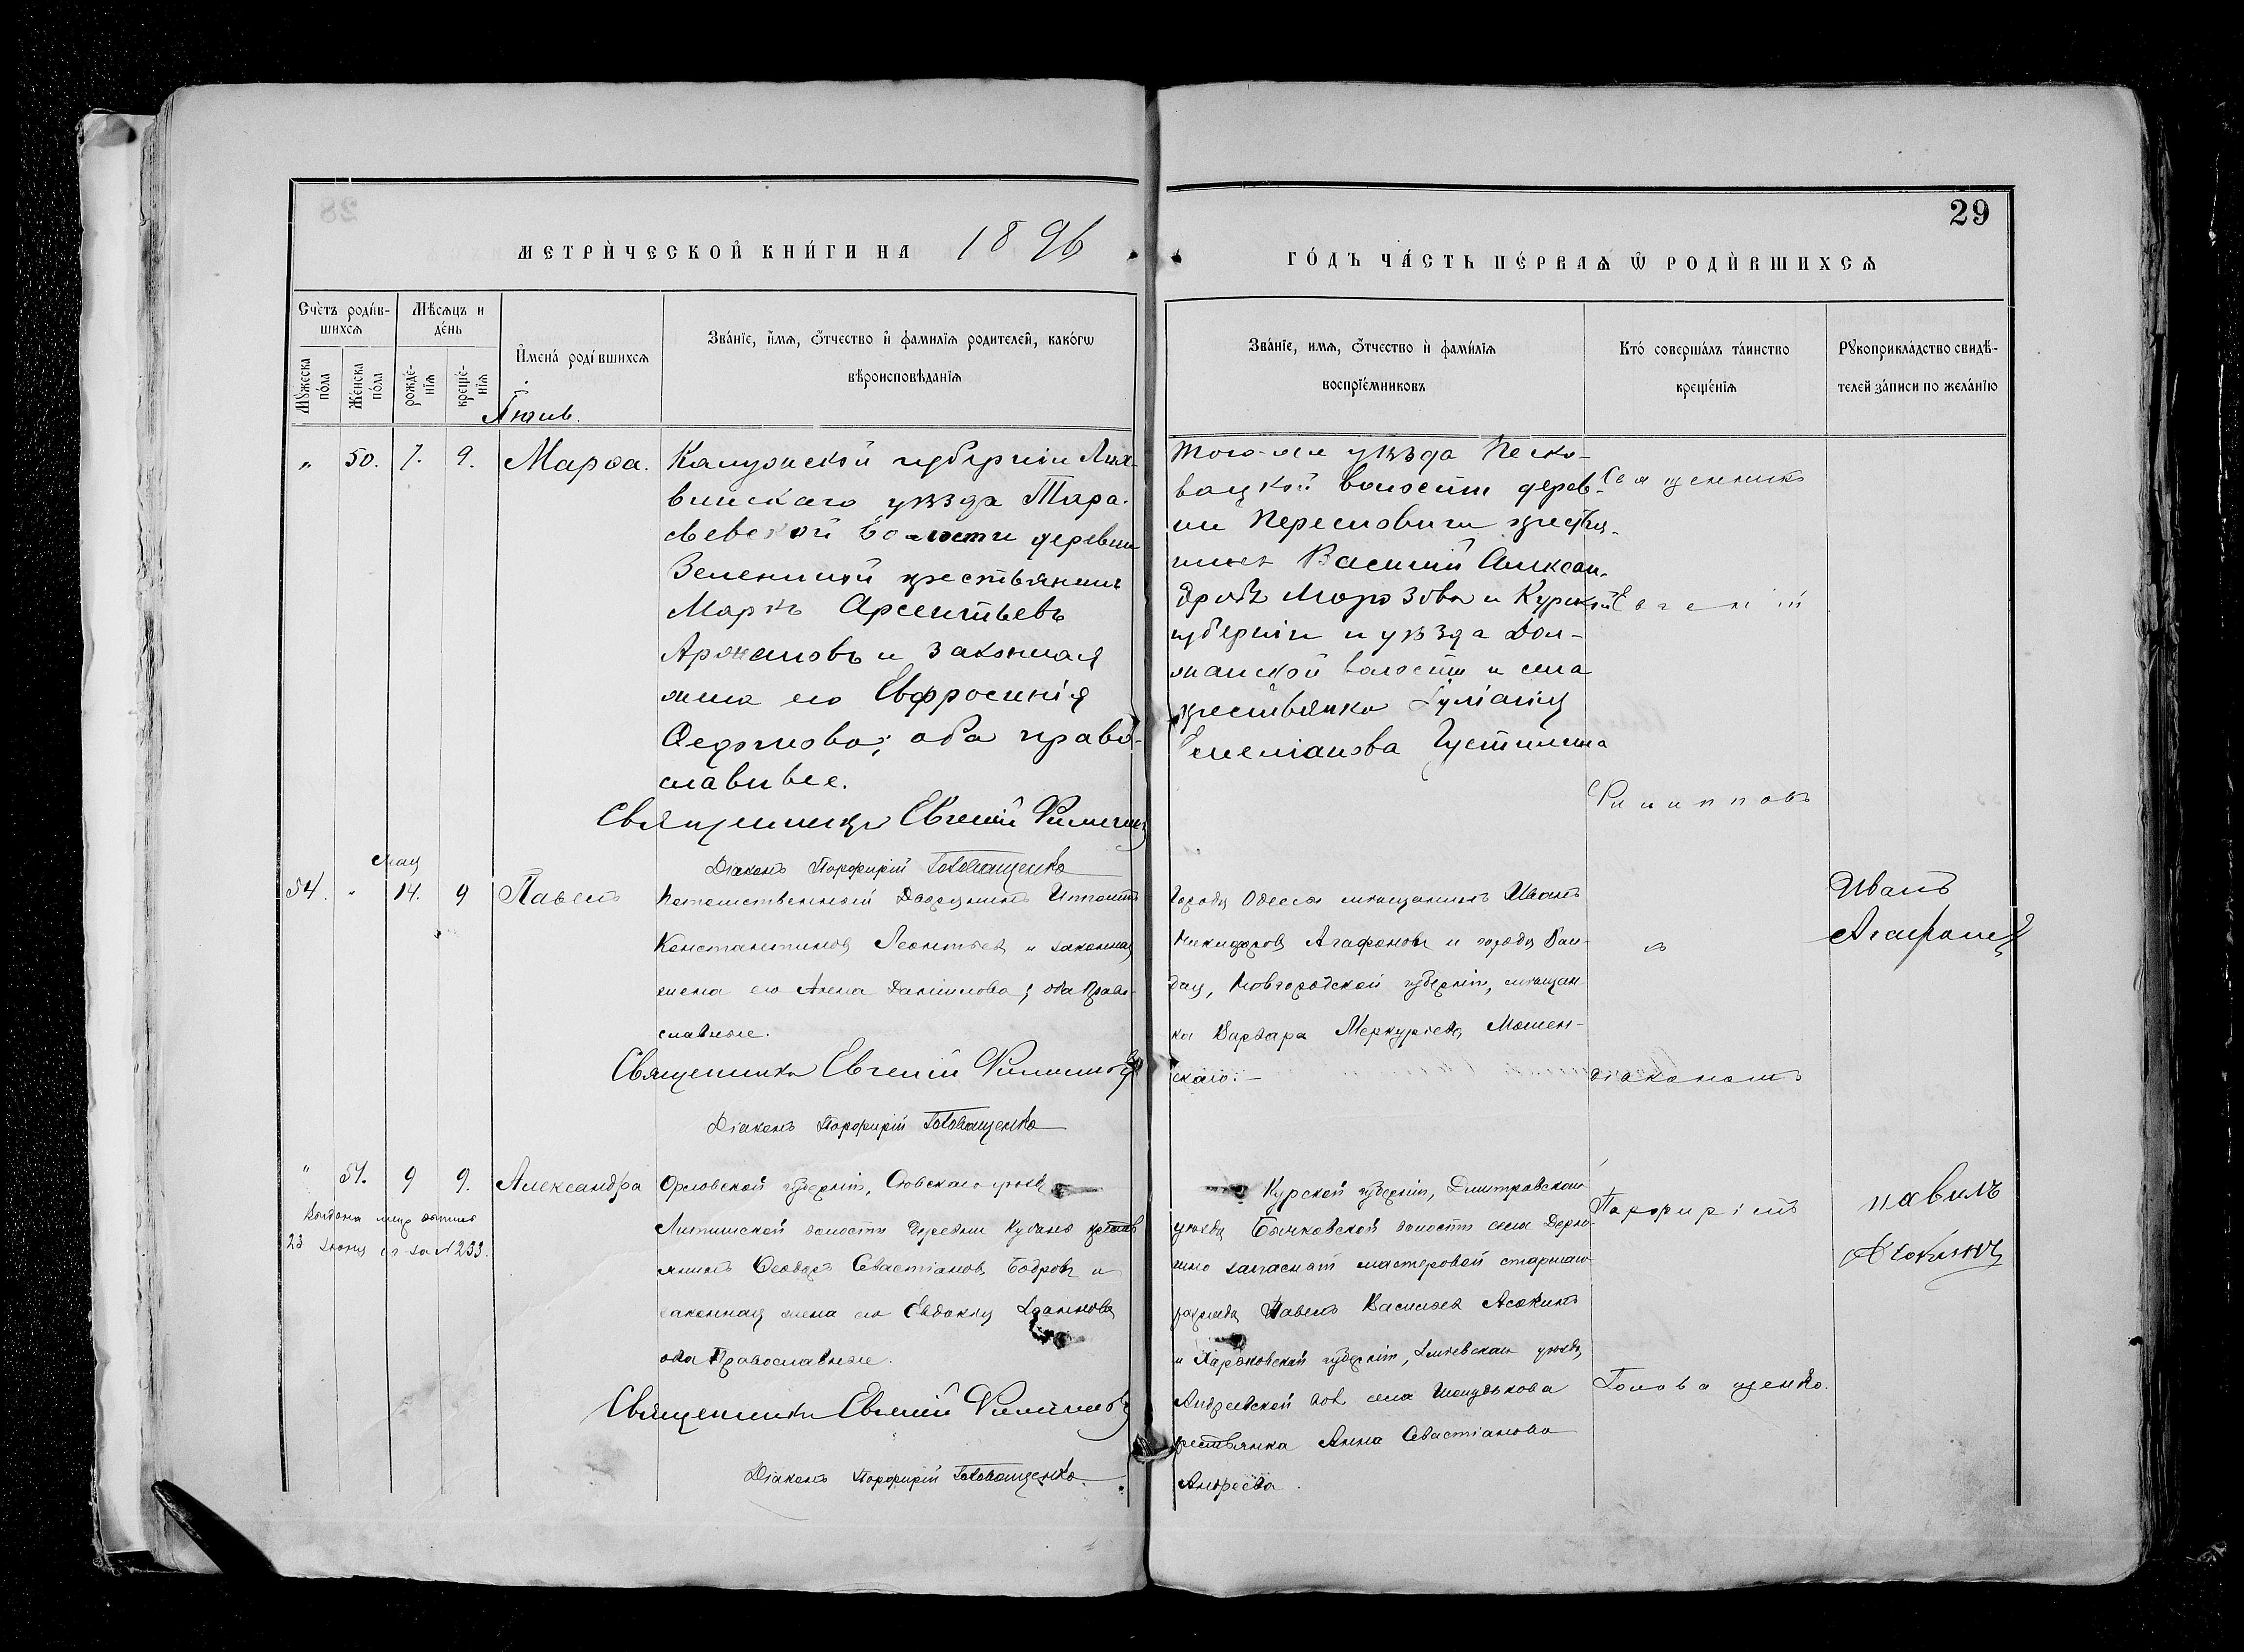 29
МЕТРИ́ЧЕСКОЙ КНИ́ГИ НА 1896
ГО́ДЪ ЧА́СТЬ ПЕ́РВАѦ Ѡ҆ РОДИ́ВШИХСѦ
Счѐтъ роди́в-
шихсѧ
Мѣ́сѧцъ и
де́нь
Мꙋ́жеска
по́ла
Же́нска
по́ла
рожде́-
нїѧ
креще́-
нїѧ
И҆мена́ роди́вшихсѧ
Зва́нїе, и҆́мѧ, ѻ҆́тчество и҆ фами́лїѧ родителей, како́гѡ
вѣроисповѣ́данїѧ
Зва́нїе, имѧ, ѻ҆́тчество и҆ фами́лїѧ
воспрїе́мниковъ
Кто́ соверша́лъ та́инство
креще́нїѧ
Рꙋкоприкла́дство свидѣ́-
телей за́писи по жела́нїю
Іюнь.
" 50. 7. 9. Марѳа.
Калужской губерніи Лих-
винскаго уѣзда Тара-
сьевской волости деревни
крестьянинъ
Маркъ Арсентьевъ
Аржановъ и законная
жена его Евфросинія
Ѳедотова; оба право-
славные.
Священникъ Евгеній Филиппов
Діаконъ Порфирій Головащенко
того-же уѣзда Песко-
вацкой волости дерев-
ни крестья-
нинъ Василій Алексан-
дровъ Морозовъ и Курской
губерніи и уѣзда Дол-
жанской волости и села
крестьянка Іуліанія
Емеліанова
Священникъ
Евгеній
Филипповъ
Мая
54. " 14. 9 Павелъ
Потомственный Дворянинъ Ипполитъ
Константиновъ Леонтьевъ и законная
жена его Анна Даніилова; оба Право-
славные.
Священникъ Евгеній Филиппов
Діаконъ Порфирій Головащенко
Города Одессы мѣщанинъ Иванъ
Никифоровъ Агафоновъ и города Вал-
дая, Новгородской губерніи, мѣщан-
ка Варвара Меркурьева Мошен-
скаго.
съ
діакономъ
Иванъ
Агафоновъ
" 51. 9 9. Александра
Выдана метр выпись
23 Іюня за N 233.
Орловской губерніи, Сѣвскаго уѣзда
волости деревни крестья
янинъ Ѳеодоръ Севастіановъ Бодровъ и
законная жена его Евдокія
оба Православные.
Священникъ Евгеній Филиппов
Діаконъ Порфирій Головащенко.
Курской губерніи, Дмитровскаго
уѣзда волости села
запасный мастеровой старшаго
разряда Павелъ Васильевъ
и Харьковской губерніи, Зміевскаго уѣзда
Андреевской вол села Шелудькова
крестьянка Анна Севастіанова
Андреева.
Порфиріемъ
Головащенко.
павелъ